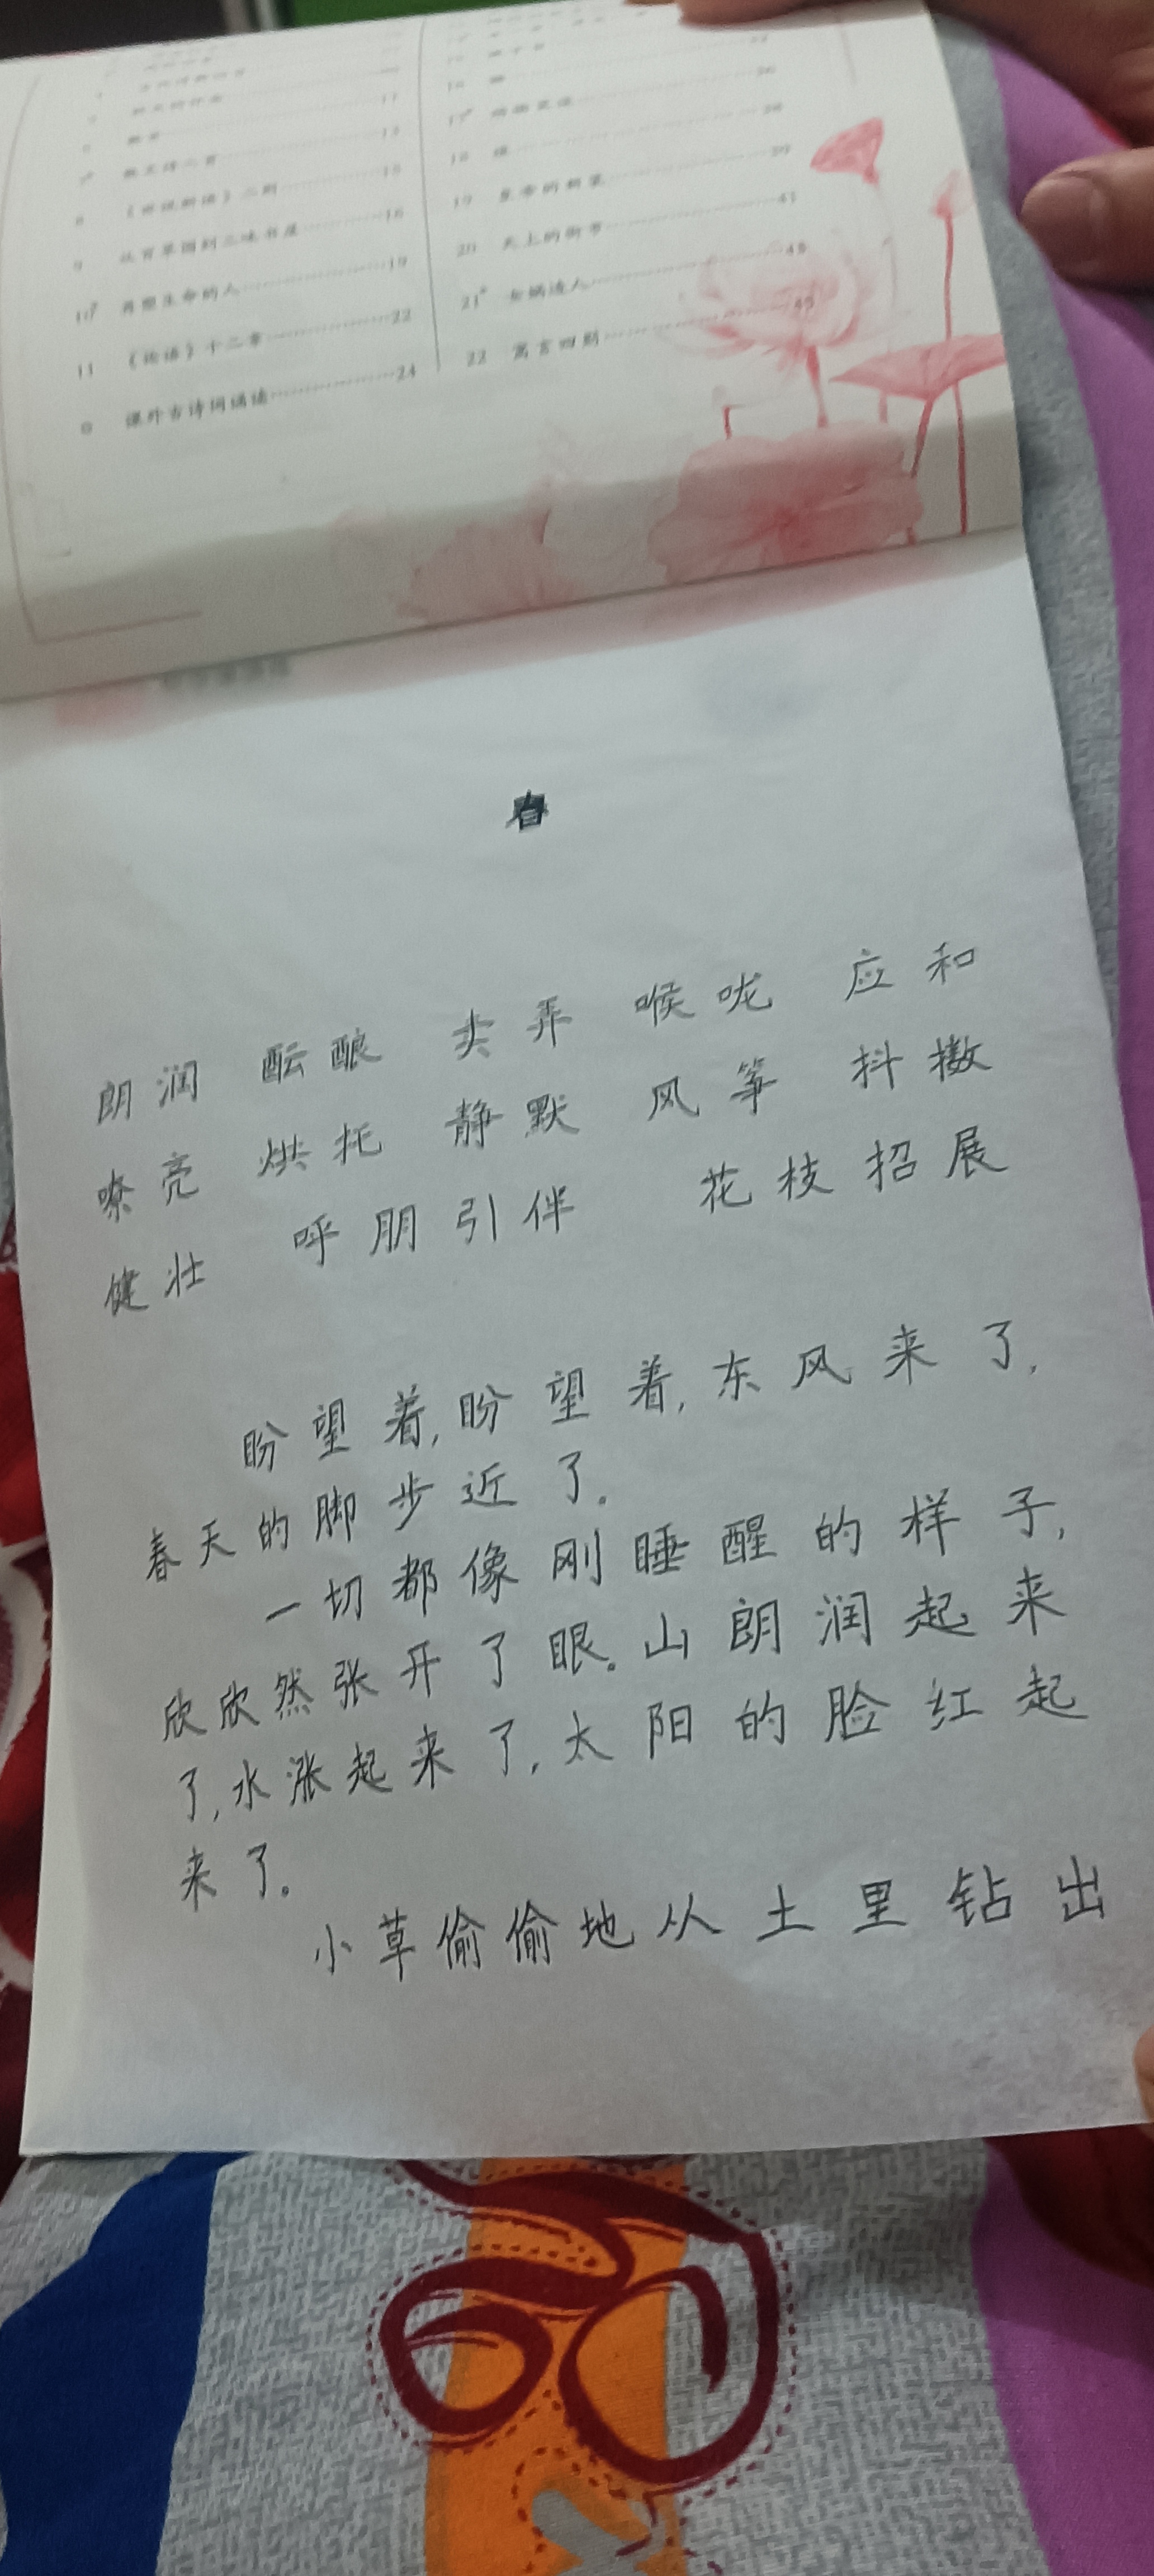 11
13
15
8 《世说新语》二则
16
9 从百草园到三味书屋
19
10* 再塑生命的人
22
11 《论语》十二章
24
课外古诗词诵读
18
39
19 皇帝的新装
41
20 天上的街市
45
21* 女娲造人
22 寓言四则
春
朗润 酝酿 卖弄 喉咙 应和
嘹亮 烘托 静默 风筝 抖擞
健壮 呼朋引伴 花枝招展
盼望着,盼望着,东风来了,
春天的脚步近了。
一切都像刚睡醒的样子,
欣欣然张开了眼。山朗润起来
了,水涨起来了,太阳的脸红起
来了。
小草偷偷地从土里钻出